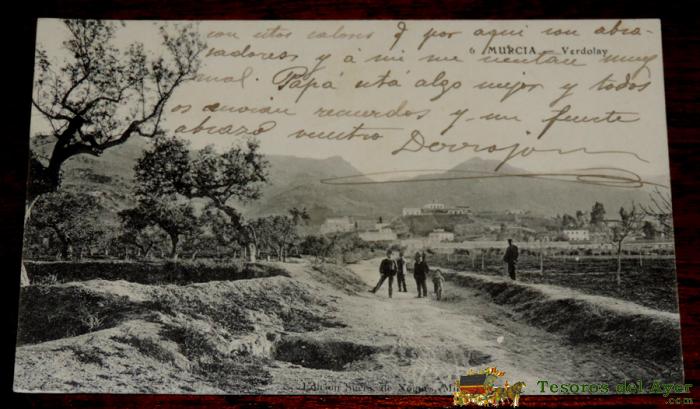 6 MURCIA — Verdolay
con estos calores q por aqui son abra-
sadores y á mi me sientan muy
mal. Papá está algo mejor y todos
os envian recuerdos y un fuerte
abrazo vuestro
Edición Sucs. de Nogués
Tesoros del Ayer
.com